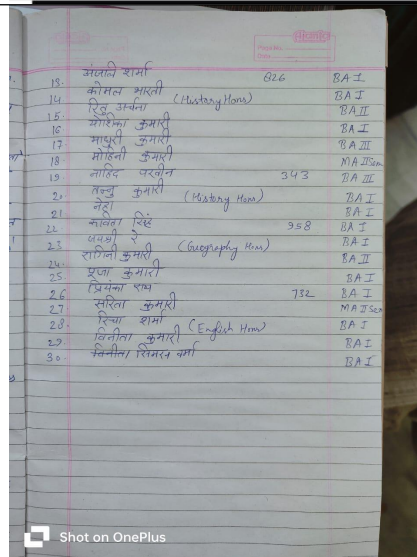 13. अंजलि शर्मा 826 BA I
14. कोमल भारती (History Hons) BA I
15. रितु अर्चना BA II
16 मोधिका कुमारी BA I
17. माधुरी कुमारी BA III
18. मोहिनी कुमारी MA II Sem
19. नाहिद परवीन 343 BA III
20. तन्नु कुमारी (History Hons) BA I
21. नेहा BA I
22. कविता सिंह 958 BA I
23 जयश्री रे (Geography Hons) BA I
24. रागिनी कुमारी BA II
25 पूजा कुमारी BA I
26 प्रियंका राय 732 BA I
27 सरिता कुमारी MA II Sem
28. रिचा शर्मा (English Hons) BA I
29. विनीता कुमारी BA I
30. सिमरन वर्मा BA I
Shot on OnePlus